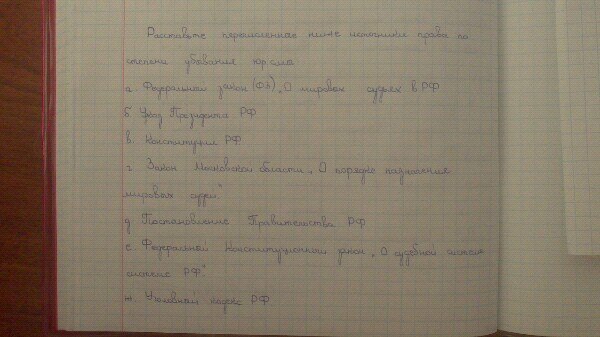 Расставьте перечисленные ниже источники права по
степени убывания юр.силы
а. Федеральный закон (ФЗ) „О мировых судьях в РФ
б. Указ Президента РФ
в. Конституция РФ
г. Закон Московской области „О порядке назначения
мировых судей"
д. Постановление Правительства РФ
е. Федеральный Конституционный закон „О судебной системе
системе РФ".
ж. Уголовный кодекс РФ